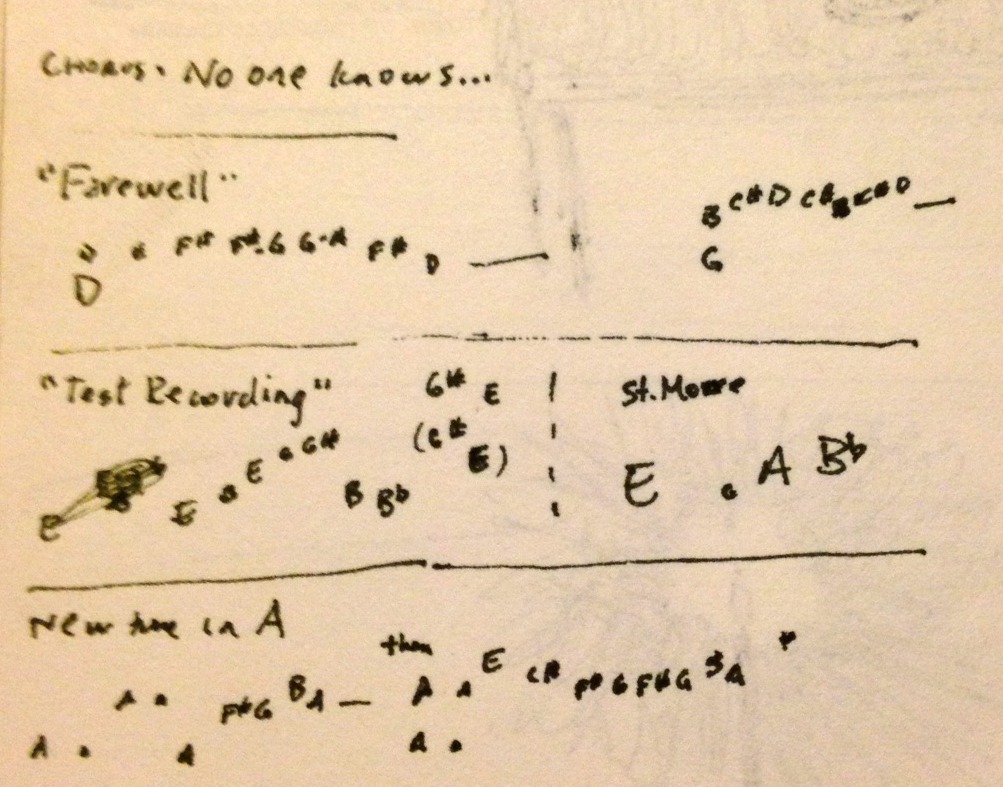 CHORUS. No one knows...
"Farewell"
B C# D C# B C# D —
F# F#-G G-A F# D —
G
D
"Test Recording"
G# E
St. Moure
(C# E)
E G G#
E B Bb
E A Bb
New tune in A
then
A F#G B A — A A E C# F# G F# G A
A A A